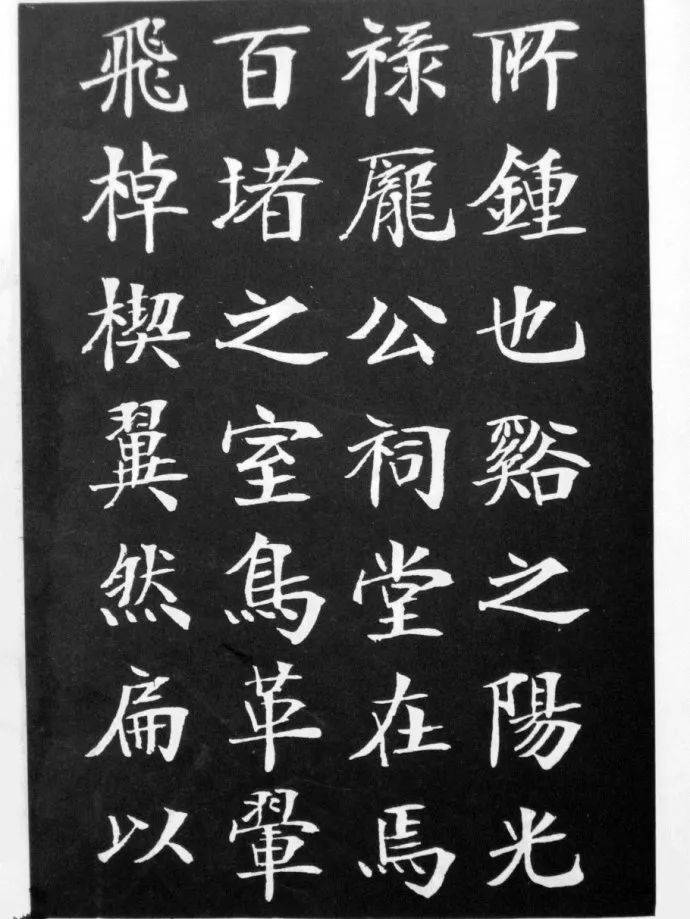 所鍾也谿之陽光
祿龐公祠堂在焉
百堵之室鳥革翬
飛棹楔翼然扁以